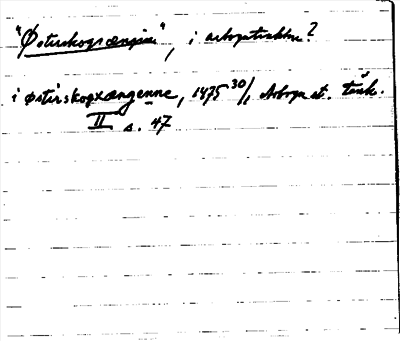 "Østirskogsængin", i arbogatrakten?
i østirskogxængenne, 1475 30/1, Arboga st. tänk.
II s. 47